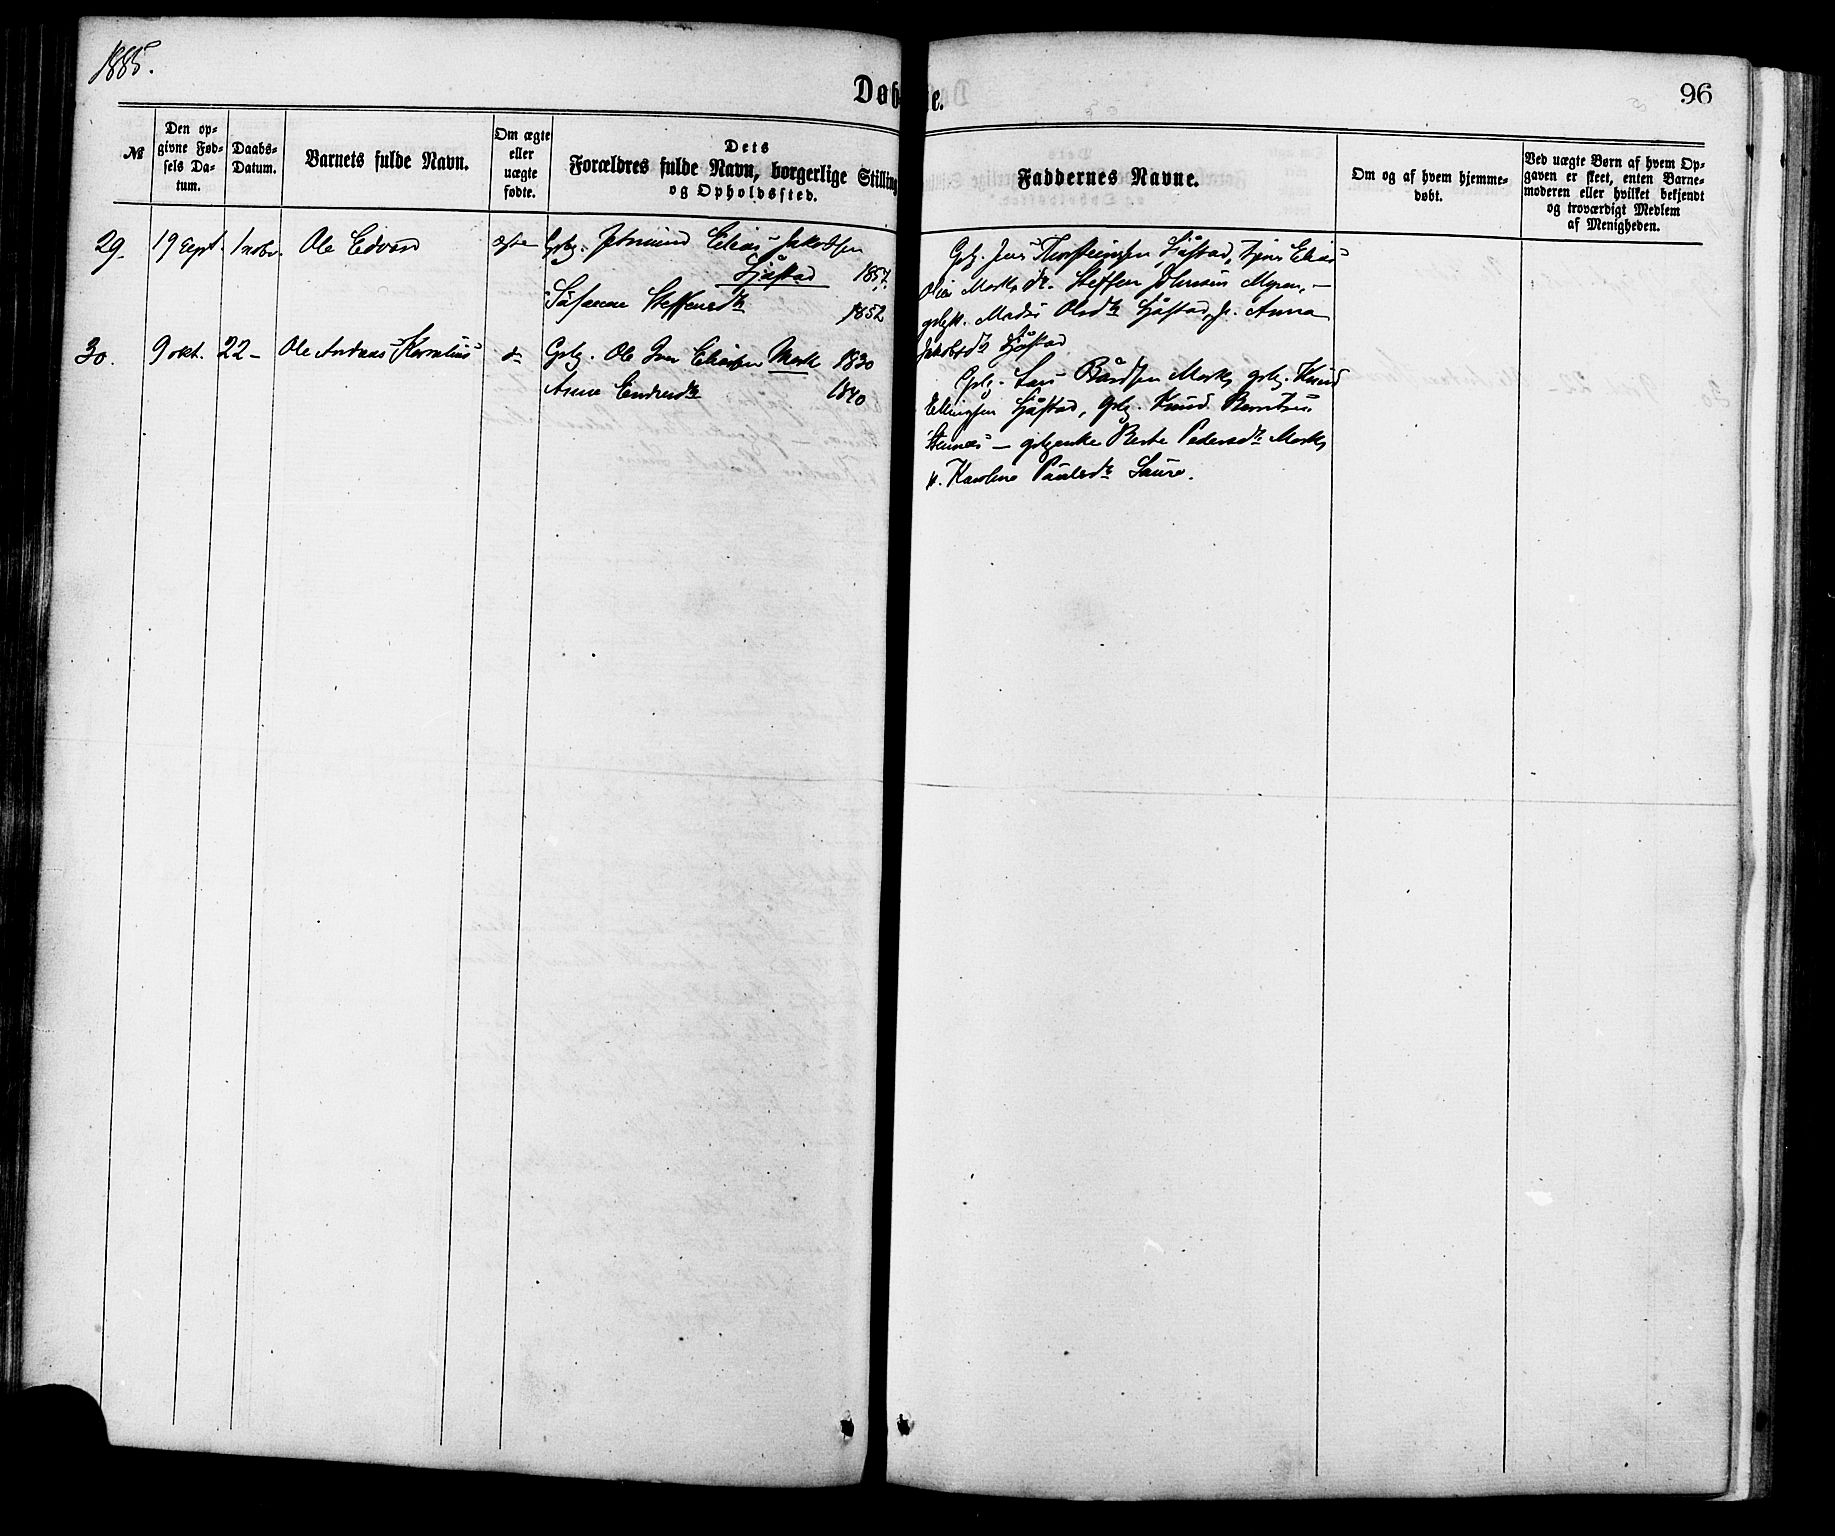 1885.
Døbte.
96
№
Den op-
givne Fød-
sels Da-
tum.
Daabs-
Datum.
Barnets fulde Navn.
Om ægte
eller
uægte
fødte.
Dets
Forældres fulde Navn, borgerlige Stilling
og Opholdssted.
Faddernes Navne.
Om og af hvem hjemme-
døbt.
Ved uægte Børn af hvem Op-
gaven er skeet, enten Barne-
moderen eller hvilket bekjendt
og troværdigt Medlem
af Menigheden.
29.
19 Sept.
1 nobr.
Ole Edvard
ægte
Grbg. Elias Jakobsen
Sjåstad 1857.
Steffensdtr
1852
Gbg. Jens Thorsteinsen Sjåstad, Elias
Mork, Steffen Johnsen Myren, –
Olsdtr Sjåstad, p. Anna
Jakobsdtr Sjåstad
30.
9 okt.
22 –
Ole Andreas Kornelius
do
Grbg. Ole Iver Eliassen Mork 1830
Anne Endresdtr 1840
Gbg. Lars Bårdsen Mork, grbg. Knud
Ellingsen Sjåstad, Grbg. Knud Berntsen
– Berte Pedersdtr Mork,
p. Karoline Paulsdtr Saure.